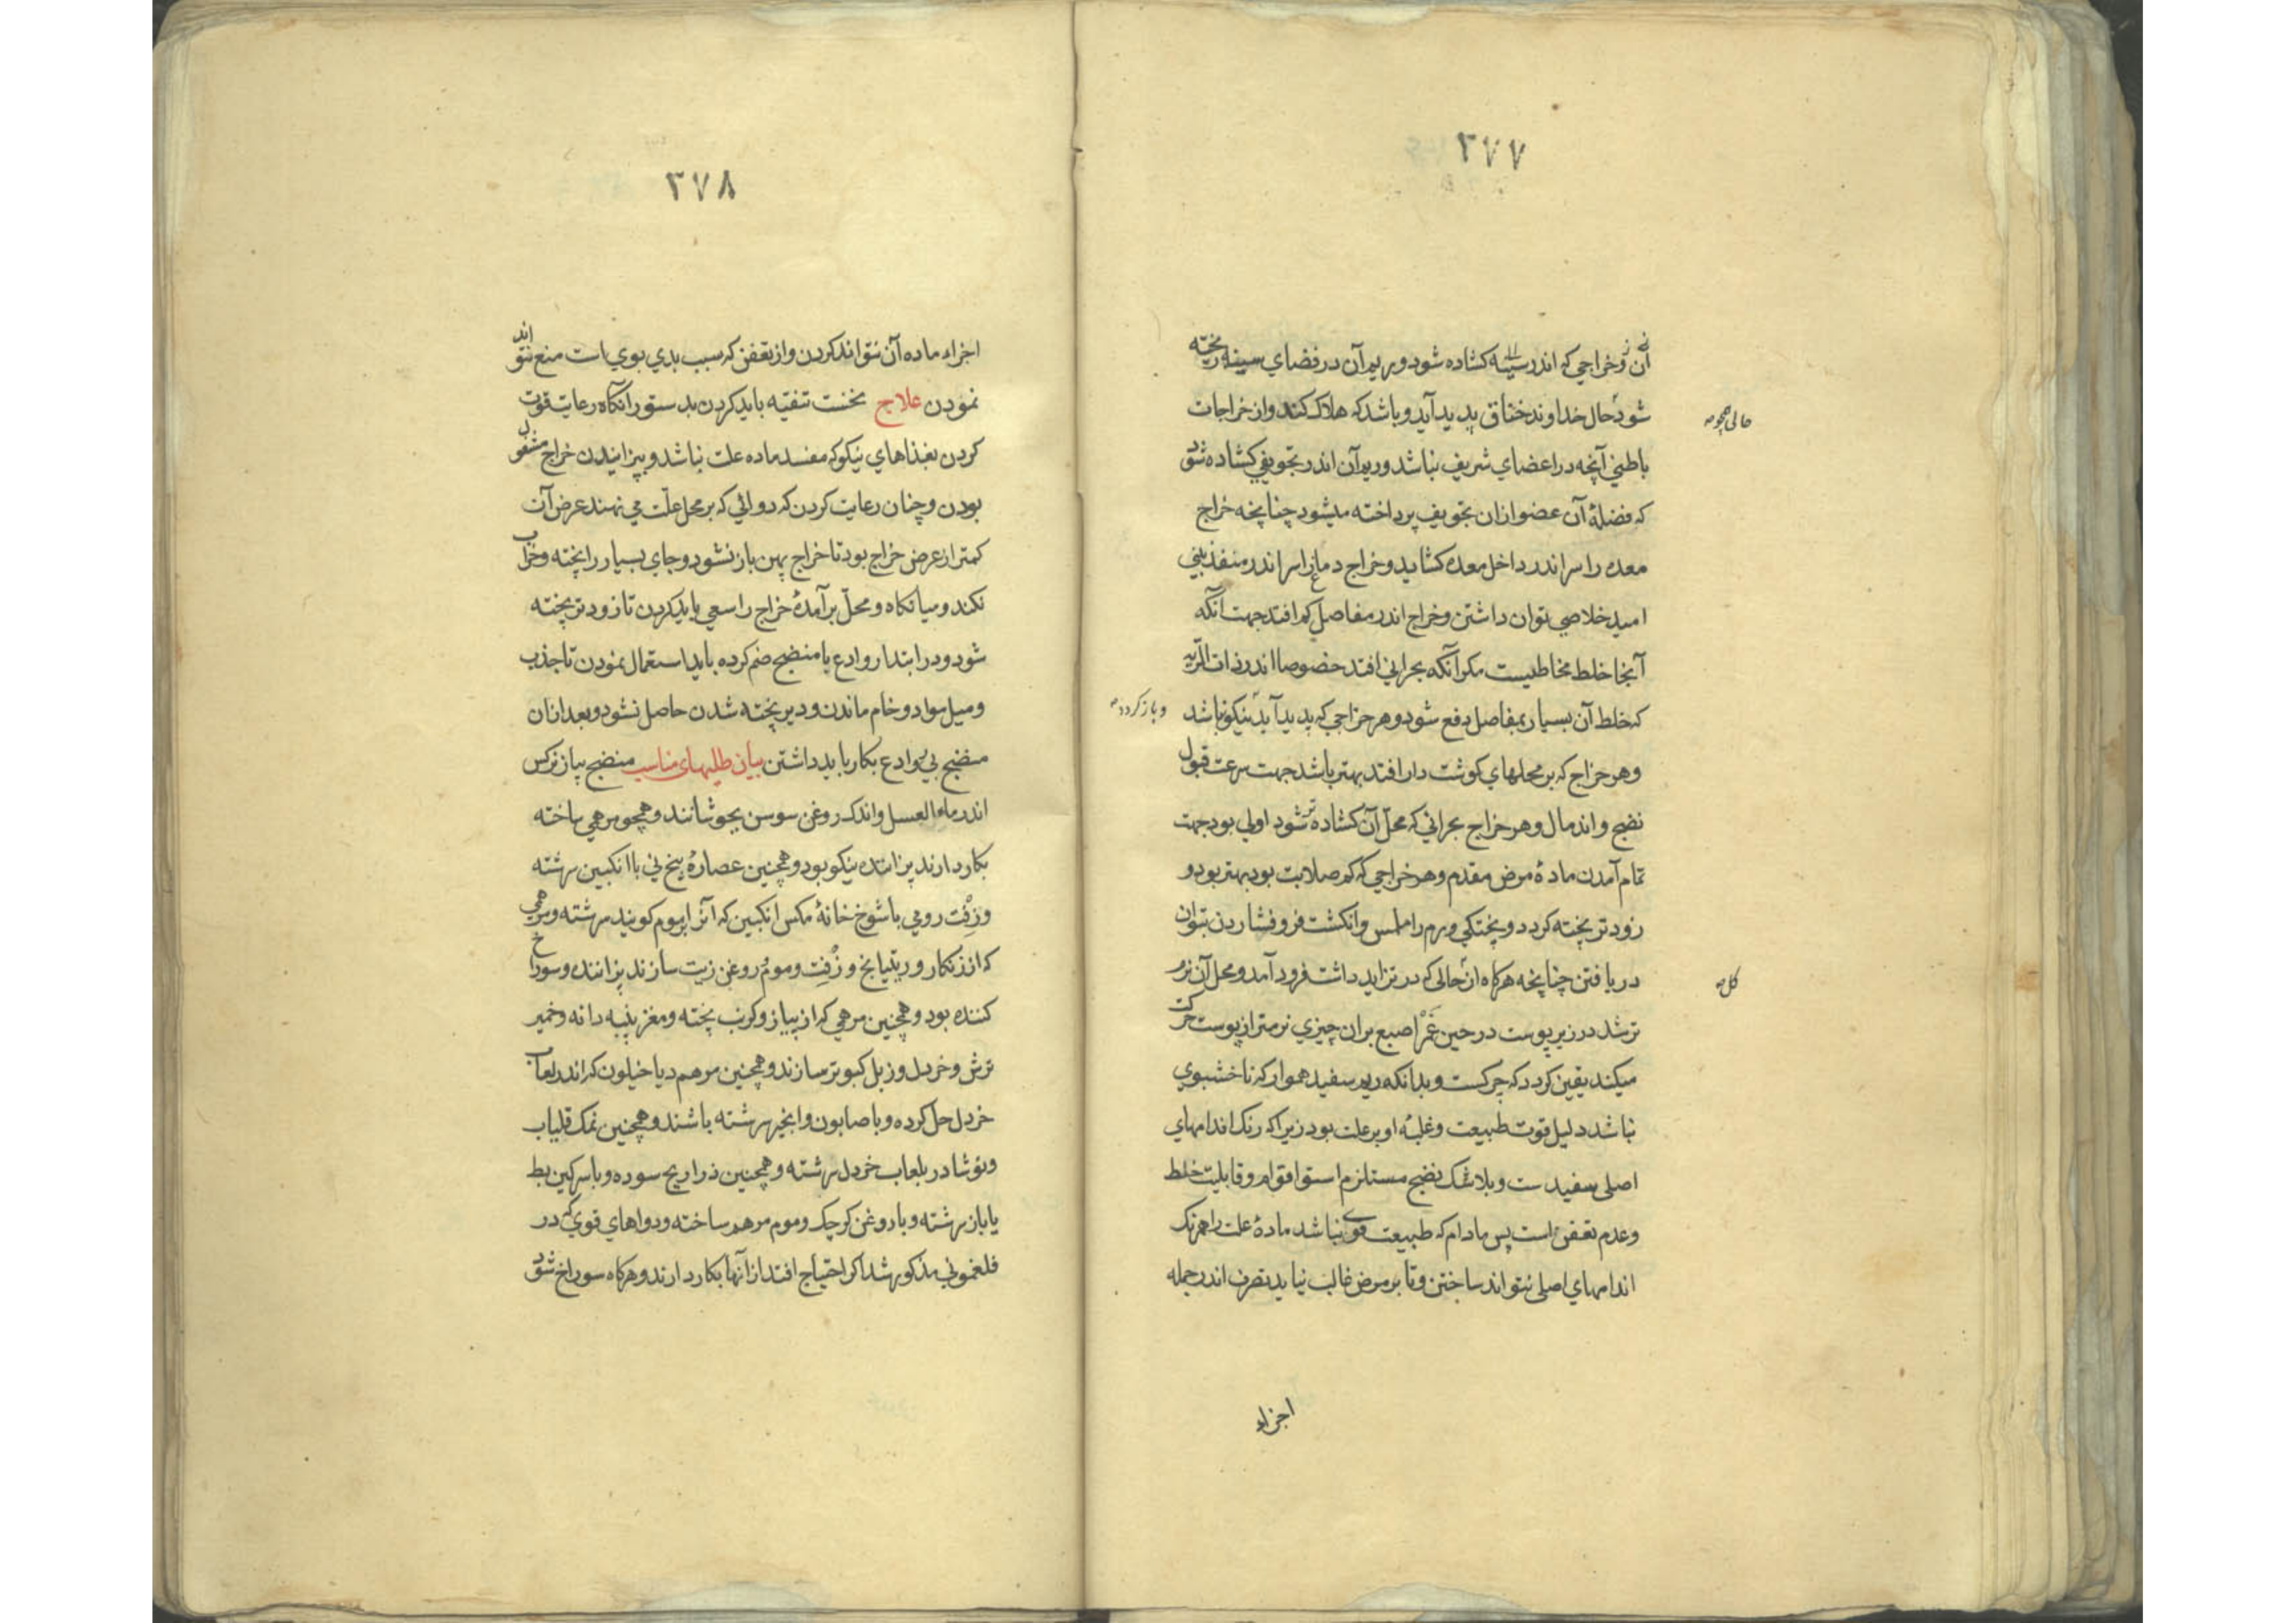 ۲۷۷
آن و خراجي كه اندر سينه كشاده شود و ريم آن در فضاي سينه ريخته
شود حال خداوند خناق پديد آيد و باشد كه هلاك كند و از خراجات
حالی همچو
باطني آنچه در اعضاي شريف نباشد و ريم آن اندر تجويفي كشاده شود
كه فضلهٔ آن عضو ازان تجويف پرداخته ميشود چنانچه خراج
معده را سر اندر داخل معده كشايد و خراج دماغ را سر اندر منفذ بيني
اميد خلاصي توان داشتن و خراج اندر مفاصل كم افتد جهت آنكه
آنجا خلط مخاطيست مكر آنكه بحراني افتد خصوصا اندر ذات الريه
كه خلط آن بسيار بمفاصل دفع شود و هر خراجي كه پديد آيد نيكو نباشد
و باز كردد
و هر خراج كه بر محلهاي كوشت دار افتد بهتر باشد جهت سرعت قبول
نضج و اندمال و هر خراج بحراني كه محل آن كشاده تر شود اولي بود جهت
تمام آمدن مادهٔ مرض مقدم و هر خراجي كه كم صلابت بود بهتر بود و
زود تر پخته كردد و پختكي ورم را بلمس و انكشت فرو فشاردن بتوان
دريافتن چنانچه هركاه ازحالی كه در تزايد داشت فرود آمد و محل آن نرم
كل
تر شد در زير پوست در حين غمز اصبع بران چيزي نرمتر از پوست حركت
ميكند يقين كردد كه چركست و بدانكه ريم سفيد هموار كه ناخشبوي
نباشد دليل قوت طبيعت و غلبهٔ او بر علت بود زيراكه رنك اندامهاي
اصلی سفيدست و بلاشك نضج مستلزم استوا قوام و قابليت خلط
و عدم تعفن است پس مادام كه طبيعت قوي نباشد مادهٔ علت را همرنك
اندامهاي اصلی نتواند ساختن و تا بر مرض غالب نيايد تصرف اندر جمله
اجزاء
۲۷۸
اجزاء ماده آن نتواند كردن و از تعفن كه سبب بدي بوي است منع نتواند
نمودن علاج نخست تنقيه بايد كردن بدستور آنكاه رعايت قوت
كردن بغذاهاي نيكو كه مفسد ماده علت نباشد و بپزانيدن خراج مشغول
بودن و چنان رعايت كردن كه دوائي كه بر محل علّت مي نهند عرض آن
كمتر از عرض خراج بود تا خراج پهن باز نشود و جاي بسيار را پخته و خراب
نكند و ميانكاه و محلّ برآمدهٔ خراج را سعي بايد كردن تا زودتر پخته
شود و در ابتدا روادع با منضج ضم كرده بايد استعمال نمودن تا جذب
و ميل مواد و خام ماندن و دير پخته شدن حاصل نشود و بعد ازان
منضج بي روادع بكار بايد داشتن بيان طليهاي مناسب منضج پياز نركس
اندر ماء العسل و اندك روغن سوسن بجوشانند و همچو مرهمي ساخته
بكار دارند پزاننده نيكو بود و همچنين عصارهٔ بيخ ني با انكبين سرشته
و زِفت رومي با شوخ خانهٔ مكس انكبين كه آنرا برموم كويند سرشته و مرهمي
كه از زنكار و ريتيانج و زِفت و موم و روغن زيت سازند پزاننده و سوراخ
كننده بود و همچنين مرهمي كه از پياز و كرنب پخته و مغز پنبه دانه و خمير
ترش و خردل و زبل كبوتر سازند و همچنين مرهم دياخيلون كه اندر لعاب
خردل حل كرده و با صابون و انجير سرشته باشند و همچنين نمك قلياب
و نوشادر بلعاب خردل سرشته و همچنين ذراريح سوده و با سركين بط
يا باز سرشته و با روغن كرچك و موم مرهم ساخته و دواهاي قوي كه در
فلغموني مذكور شد اكر احتياج افتد از آنها بكار دارند و هركاه سوراخ شود